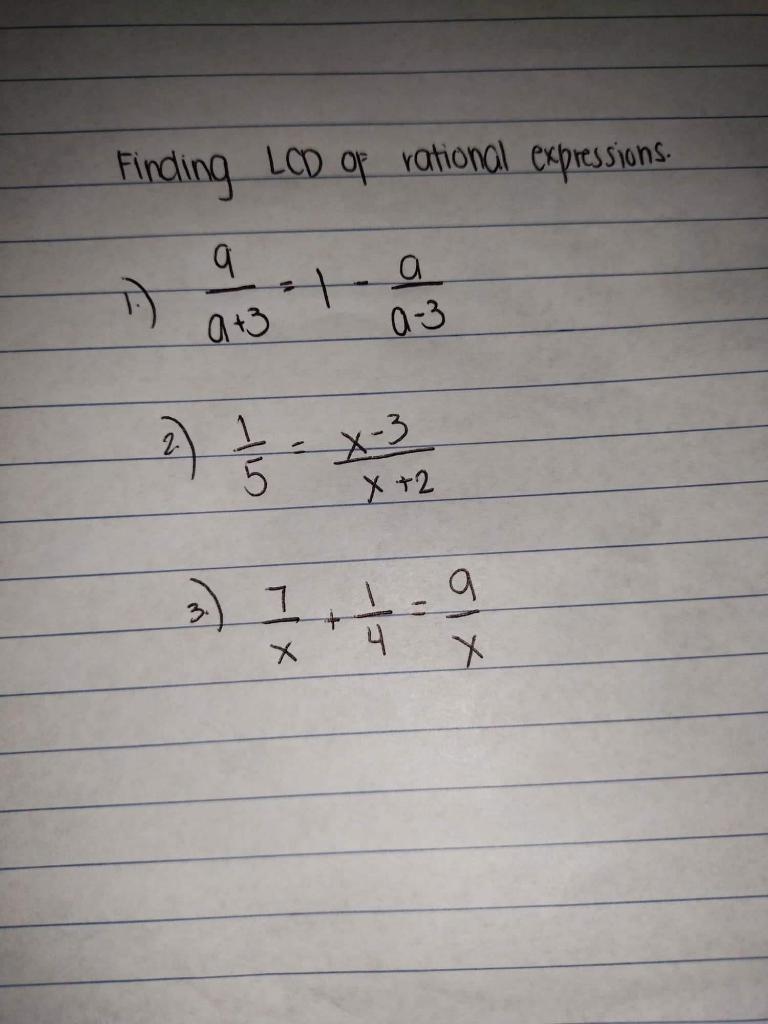 Finding LCD of rational expressions.
1.) 9/(a+3) = 1 - a/(a-3)
2.) 1/5 = (x-3)/(x+2)
3.) 7/x + 1/4 = 9/x